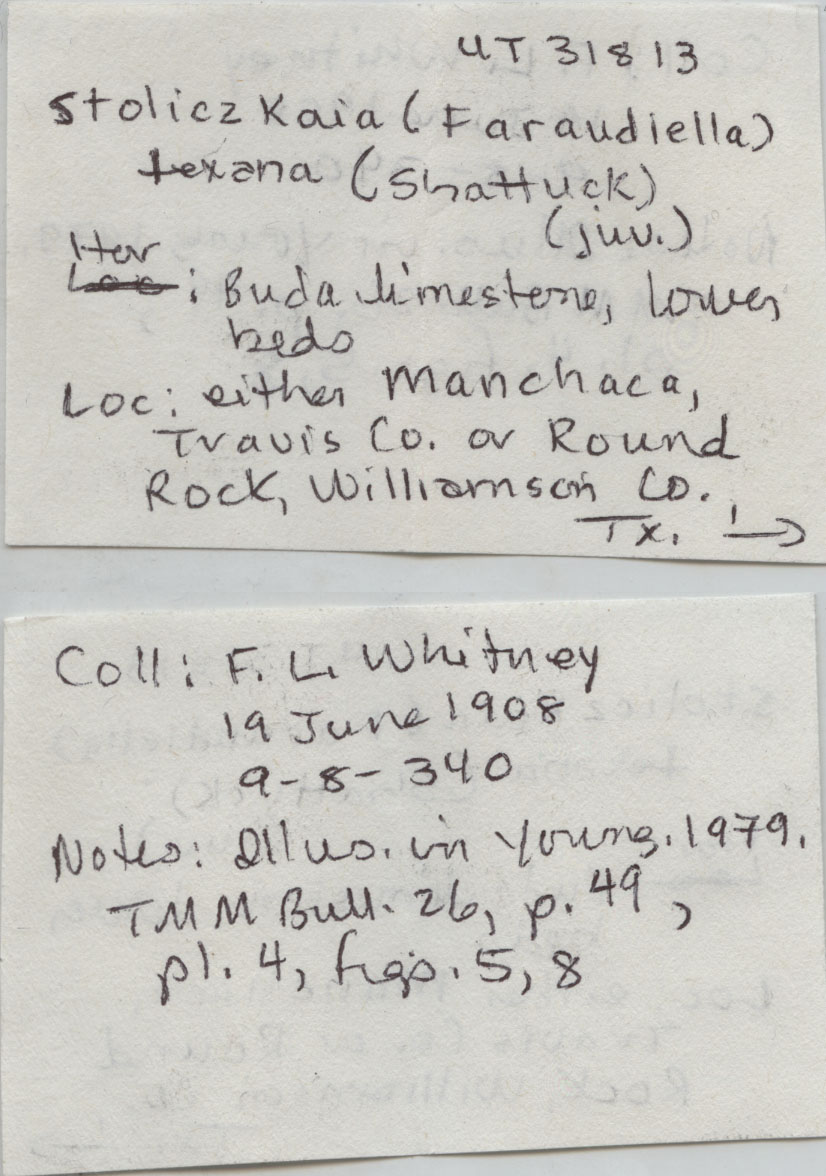 UT 31813
Stoliczkaia (Faraudiella)
texana (Shattuck)
(juv.)
Hor
Loc: Buda limestone, lower
beds
Loc: either Manchaca,
Travis Co. or Round
Rock, Williamson Co.
Tx. →
Coll: F. L. Whitney
19 June 1908
9-8-340
Notes: Illus. in Young. 1979.
TMM Bull. 26, p. 49,
pl. 4, figs. 5, 8